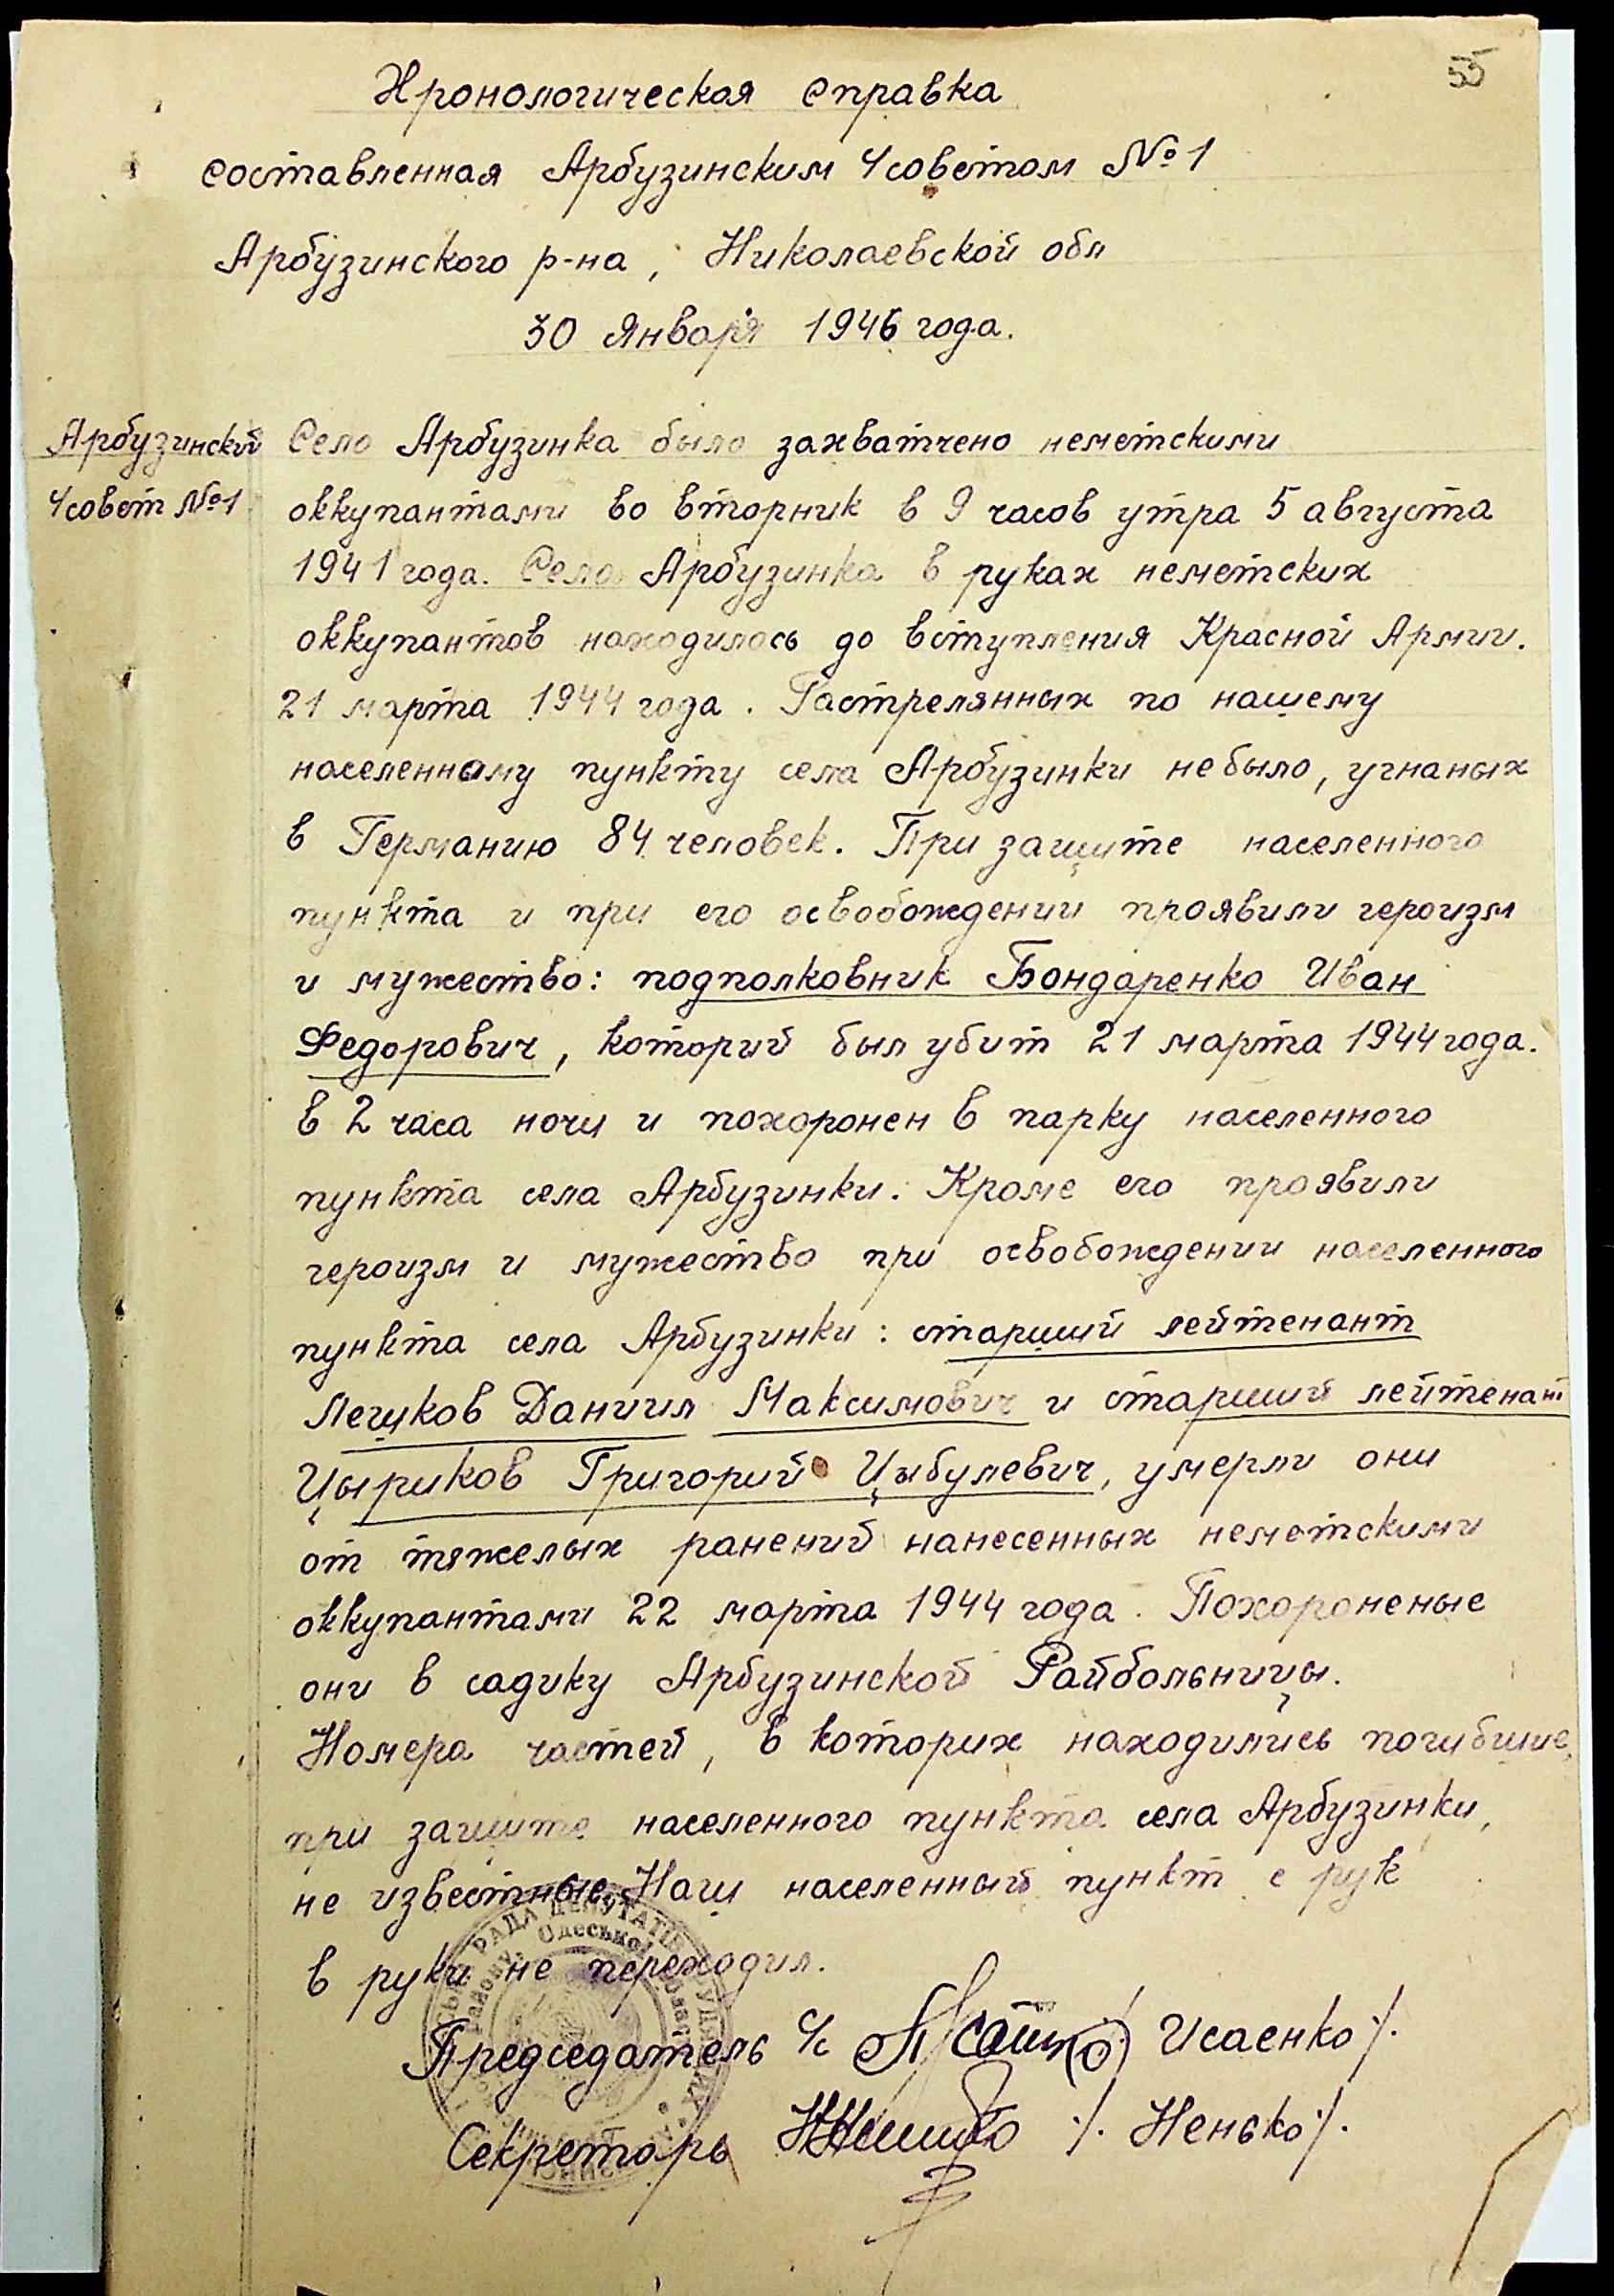 55
Хронологическая справка
составленная Арбузинским Ч/советом №1
Арбузинского р-на, Николаевской обл
30 Января 1946 года.
Арбузинский
Ч/совет №1
Село Арбузинка было захватчено неметскими
оккупантами во вторник в 9 часов утра 5 августа
1941 года. Село Арбузинка в руках неметских
оккупантов находилось до вступления Красной Армии.
21 марта 1944 года. Растрелянных по нашему
населенному пункту села Арбузинки не было, угнаных
в Германию 84 человек. При защите населенного
пункта и при его освобождении проявили героизм
и мужество: подполковник Бондаренко Иван
Федорович, который был убит 21 марта 1944 года.
в 2 часа ночи и похоронен в парку населенного
пункта села Арбузинки. Кроме его проявили
героизм и мужество при освобождении населенного
пункта села Арбузинки: старший лейтенант
Легиков Даниил Максимович и старший лейтенант
Цыриков Григорий Цыбулевич, умерли они
от тяжелых ранений нанесенных неметскими
оккупантами 22 марта 1944 года. Похороненые
они в садику Арбузинской Райбольницы.
Номера частей, в которих находились погибшие,
при защите населенного пункта села Арбузинки,
не известные. Наш населенный пункт с рук
в руки не переходил.
РАДА ДЕПУТАТІВ ТРУДЯЩИХ
району, Одеської області
Председатель ч/с /Исаенко/.
Секретарь /Ненько/.